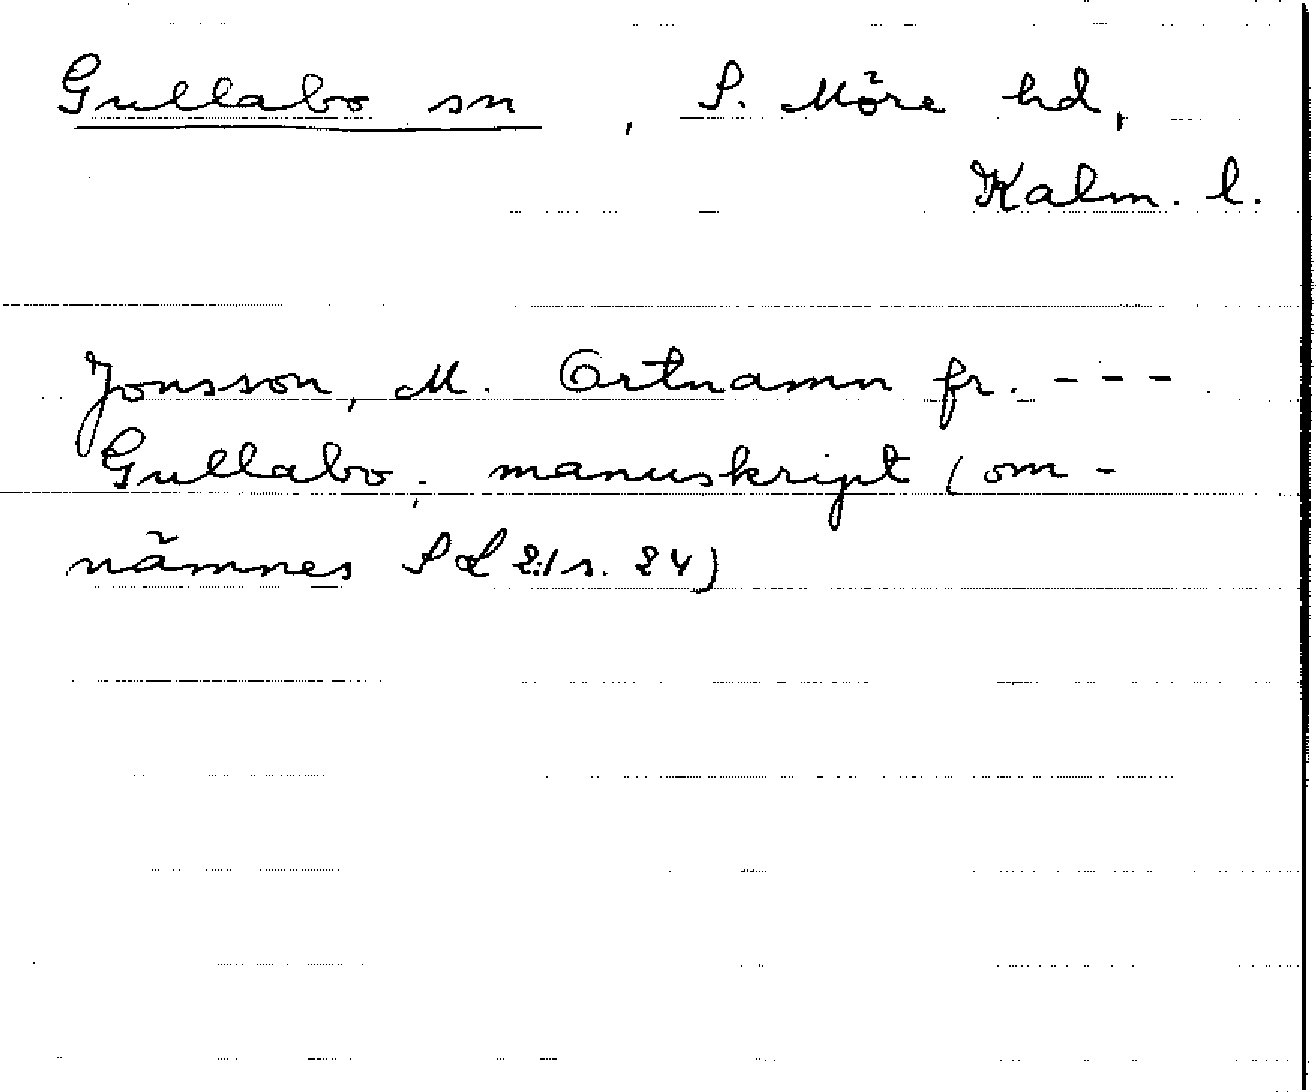 Gullabo sn, S. Möre hd,
Kalm. l.
Jonsson, M. Ortnamn fr. ---
Gullabo; manuskript (om-
nämnes SL 2:1 s. 24)